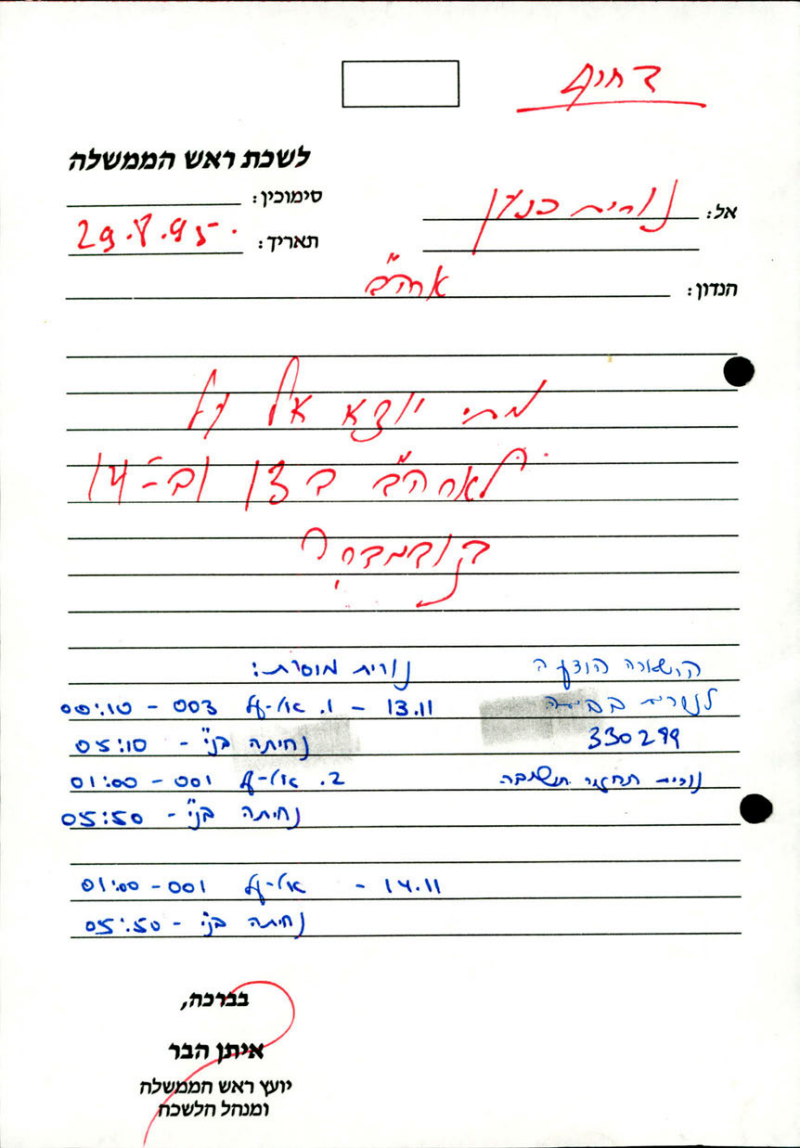 דחוף
לשכת ראש הממשלה
סימוכין:
אל: נורית כנען
תאריך: 29.8.95
הנדון: ארה״ב
מתי יוצא אל על
לארה״ב ב 13 וב-14
בנובמבר?
השאלה הודעה
לנורית בביתה
330299
נורית תחזיר תשובה
נורית מוסרת:
13.11 - 1. אל-על 003 - 00:10
נחיתה בנ״י - 05:10
2. אל-על 001 - 01:00
נחיתה בנ״י - 05:50
14.11 - אל-על 001 - 01:00
נחיתה בנ״י - 05:50
בברכה,
איתן הבר
יועץ ראש הממשלה
ומנהל הלשכה